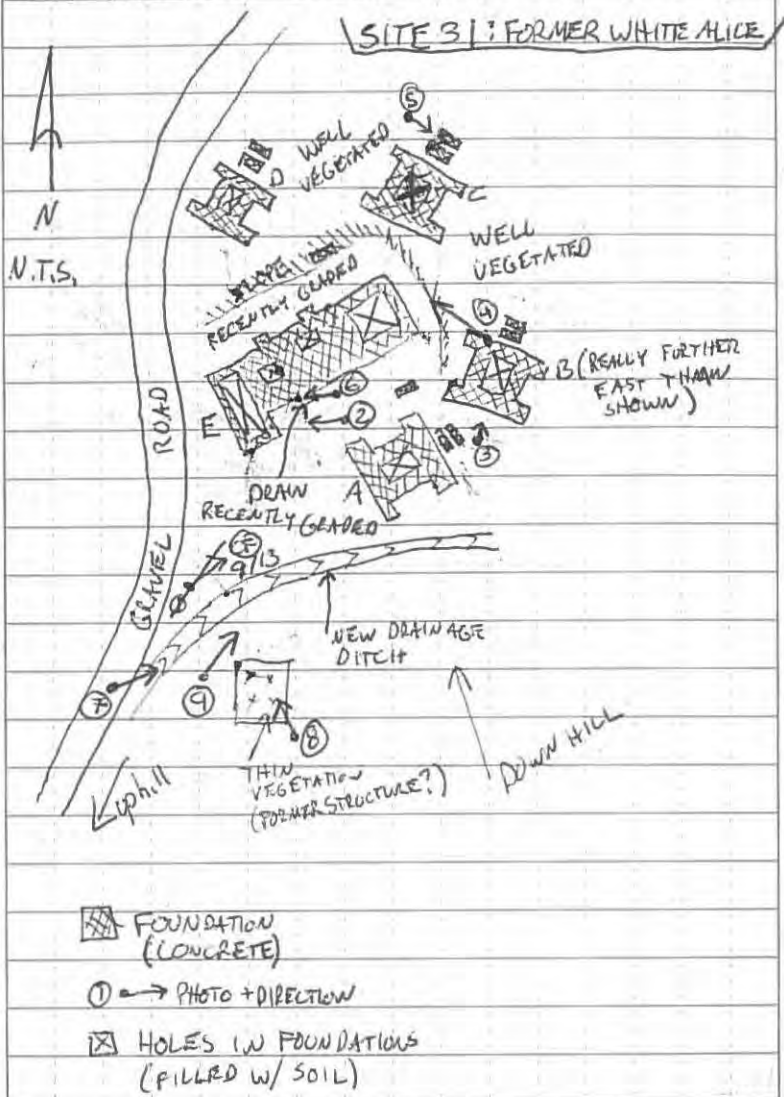 SITE 31: FORMER WHITE ALICE
N
N.T.S.
5
WELL
VEGETATED
D
C
WELL
VEGETATED
SLOPE
RECENTLY GRADED
4
B (REALLY FURTHER
EAST THAN
SHOWN)
6
2
3
E
A
DRAIN
RECENTLY GRADED
GRAVEL ROAD
9/13
NEW DRAINAGE
DITCH
7
9
8
THIN
VEGETATION
(FORMER STRUCTURE?)
DOWN HILL
uphill
FOUNDATION
(CONCRETE)
1 PHOTO + DIRECTION
HOLES IN FOUNDATIONS
(FILLED W/ SOIL)